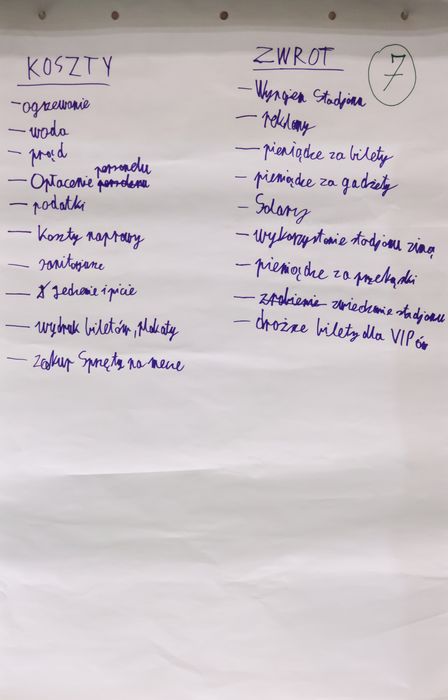 KOSZTY
- ogrzewanie
- woda
- prąd
- Opłacenie personelu
- podatki
- Koszty naprawy
- sanitarne
- Jedzenie i picie
- wydruk biletów, plakaty
- zakup Sprzętu na mecze
ZWROT
7
- Wynajem Stadjonu
- reklamy
- pieniądze za bilety
- pieniądze za gadżety
- Solary
- wykorzystanie stadjonu zimą
- pieniądze za przekąski
- zrobienie zwiedzanie stadjonu
- drożne bilety dla VIPów